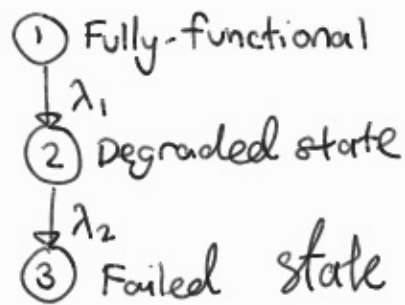 1 Fully-functional
λ1
2 Degraded state
λ2
3 Failed state